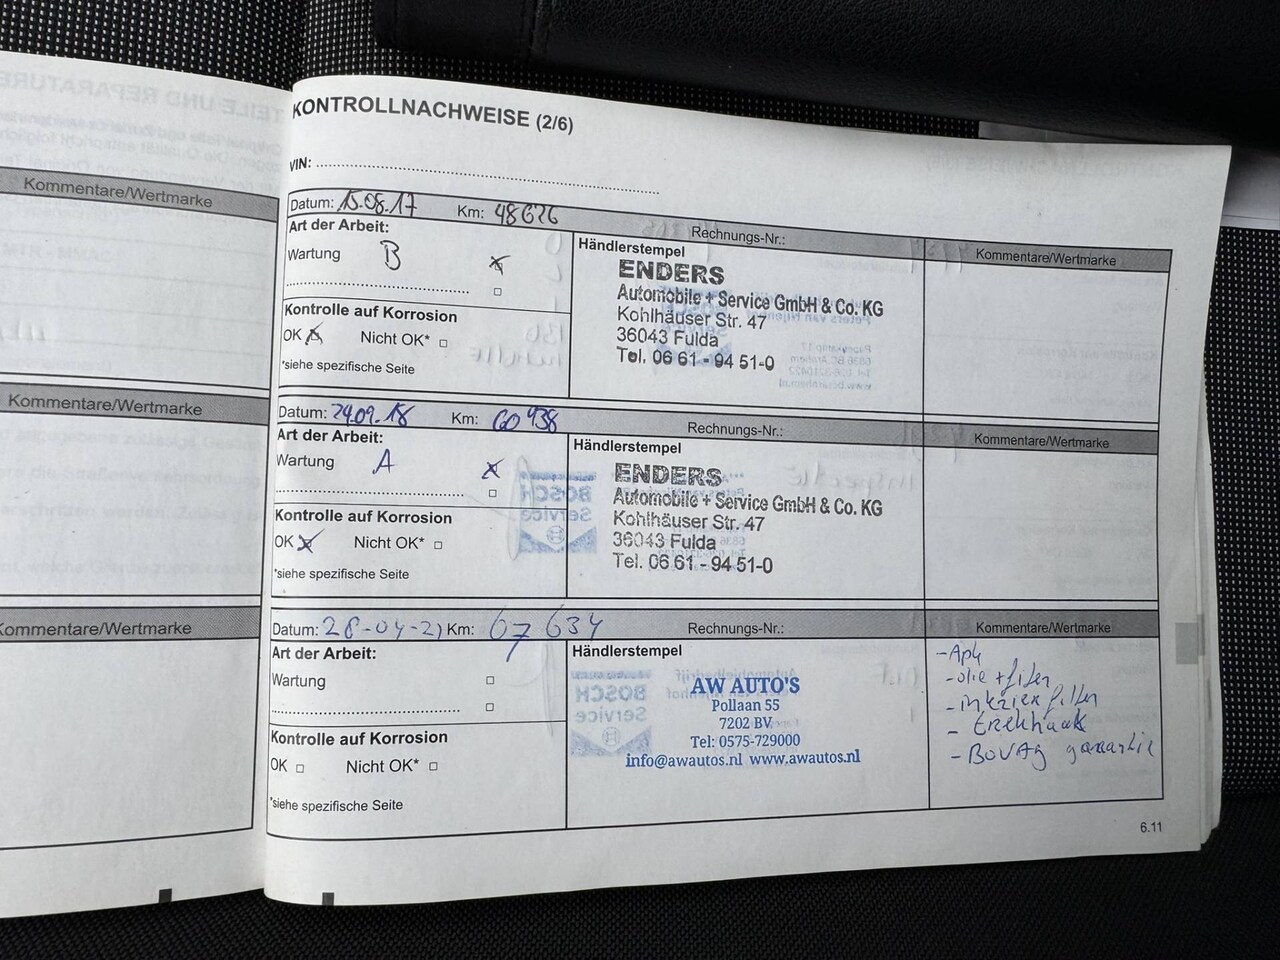 KONTROLLNACHWEISE (2/6)
VIN:
Kommentare/Wertmarke
Datum: 15.08.17 Km: 48626 Rechnungs-Nr.:
Art der Arbeit:
Wartung B
Kontrolle auf Korrosion
OK Nicht OK*
*siehe spezifische Seite
Händlerstempel
ENDERS
Automobile + Service GmbH & Co. KG
Kohlhäuser Str. 47
36043 Fulda
Tel. 06 61 - 94 51-0
Kommentare/Wertmarke
Kommentare/Wertmarke
Datum: 24.09.18 Km: 60938 Rechnungs-Nr.:
Art der Arbeit:
Wartung A
Kontrolle auf Korrosion
OK Nicht OK*
*siehe spezifische Seite
Händlerstempel
ENDERS
Automobile + Service GmbH & Co. KG
Kohlhäuser Str. 47
36043 Fulda
Tel. 06 61 - 94 51-0
Kommentare/Wertmarke
Kommentare/Wertmarke
Datum: 28-04-21 Km: 67634 Rechnungs-Nr.:
Art der Arbeit:
Wartung
Kontrolle auf Korrosion
OK Nicht OK*
*siehe spezifische Seite
Händlerstempel
AW AUTO'S
Pollaan 55
7202 BV
Tel: 0575-729000
info@awautos.nl www.awautos.nl
Kommentare/Wertmarke
- Apk
- olie + filter
- interieur filter
- trekhaak
- BOVAG garantie
6.11